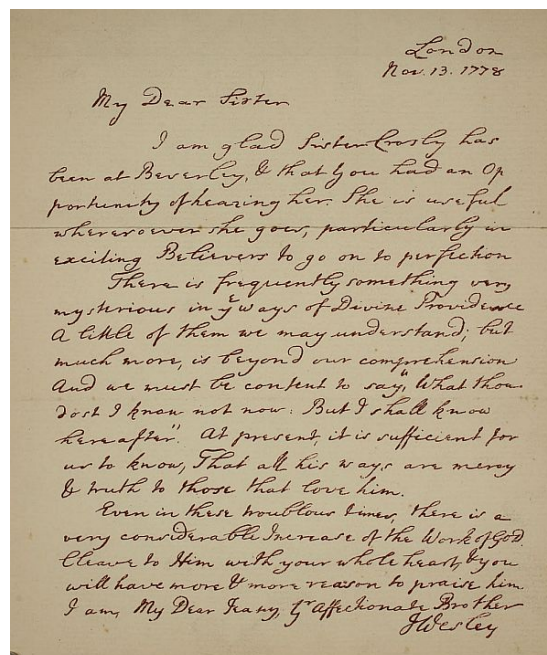 London
Nov. 13. 1778
My Dear Sister
I am glad Sister Crosby has
been at Beverley, & that you had an Op
portunity of hearing her. She is useful
wheresoever she goes, particularly in
exciting Believers to go on to perfection
There is frequently something very
mysterious in ye ways of Divine Providence
A little of them we may understand; but
much more, is beyond our comprehension
And we must be content to say, "What thou
dost I know not now: But I shall know
hereafter". At present, it is sufficient for
us to know, That all his ways are mercy
& truth to those that love him.
Even in these troublous times, there is a
very considerable Increase of the Work of God.
Cleave to Him with your whole heart, & you
will have more & more reason to praise him
I am, My Dear Frany, Yr Affectionate Brother
JWesley